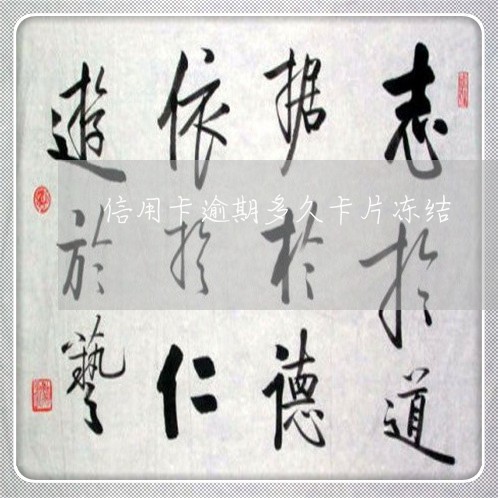 志於道
据於德
依於仁
遊於藝
信用卡逾期多久卡片冻结